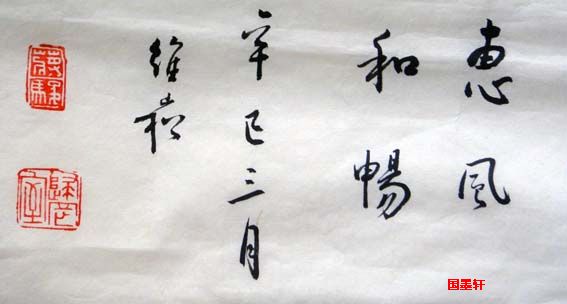 惠風
和暢
辛巳三月
維崧
国墨轩